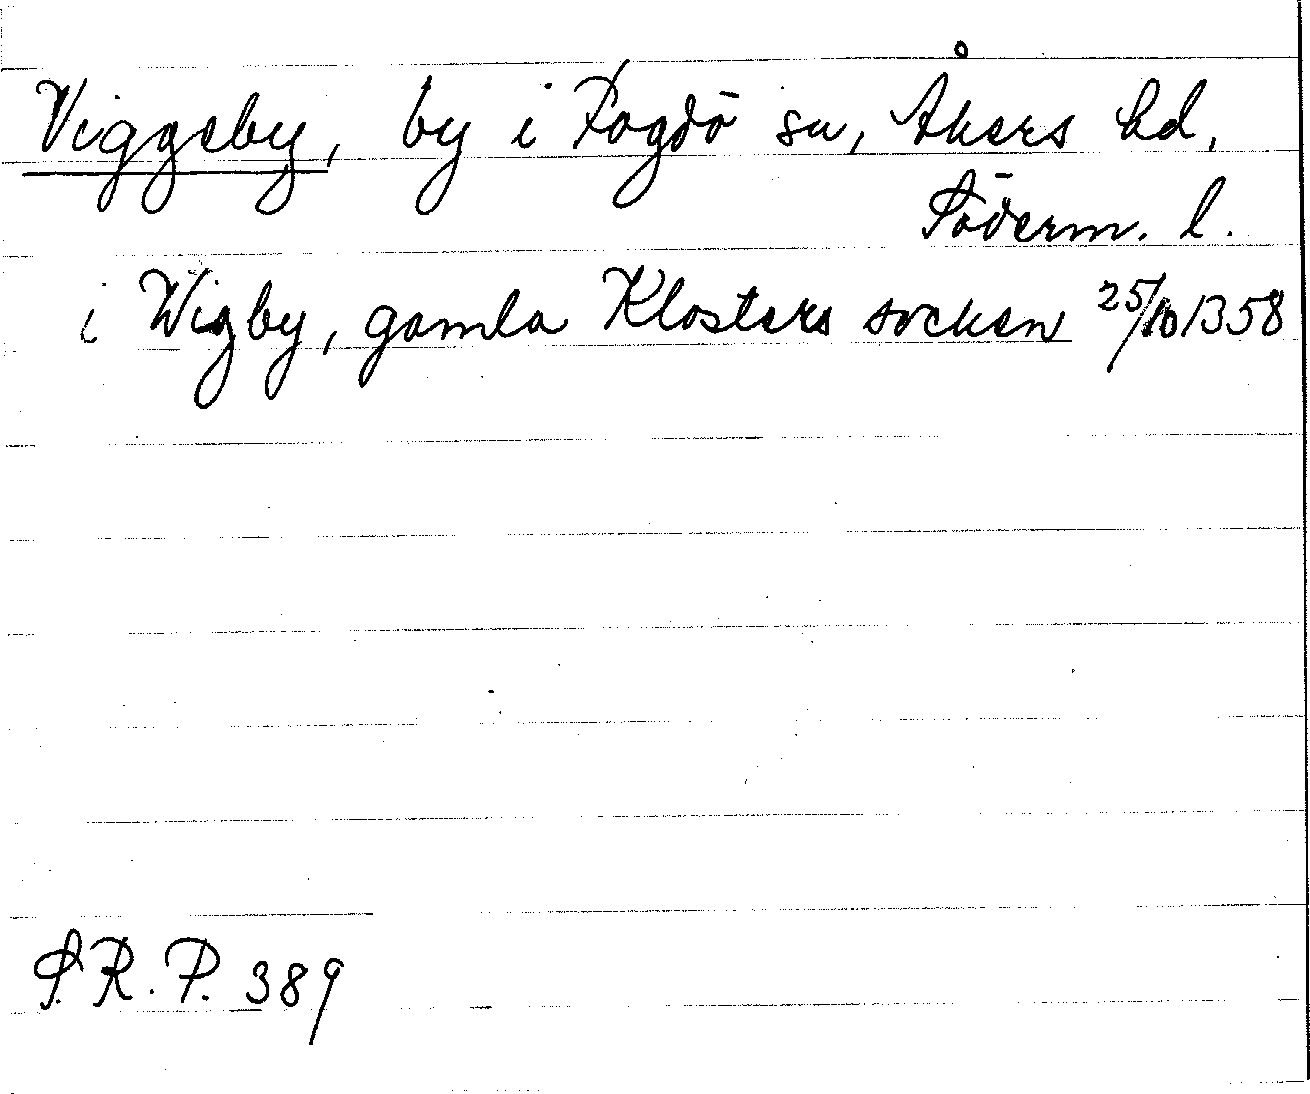 Viggeby, by i Fogdö sn, Åkers hd,
Söderm. l.
i Wigby, gamla Klosters socken 25/10 1358
S.R.P. 389